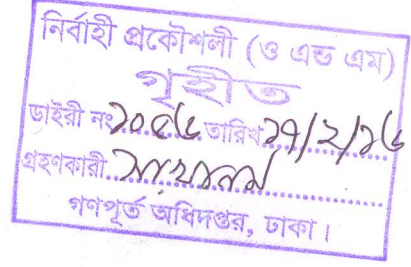 নির্বাহী প্রকৌশলী (ও এন্ড এম)
গৃহীত
ডাইরী নং ১০৫৬ তারিখ ১৭/২/১৬
গ্রহণকারী
গণপূর্ত অধিদপ্তর, ঢাকা।